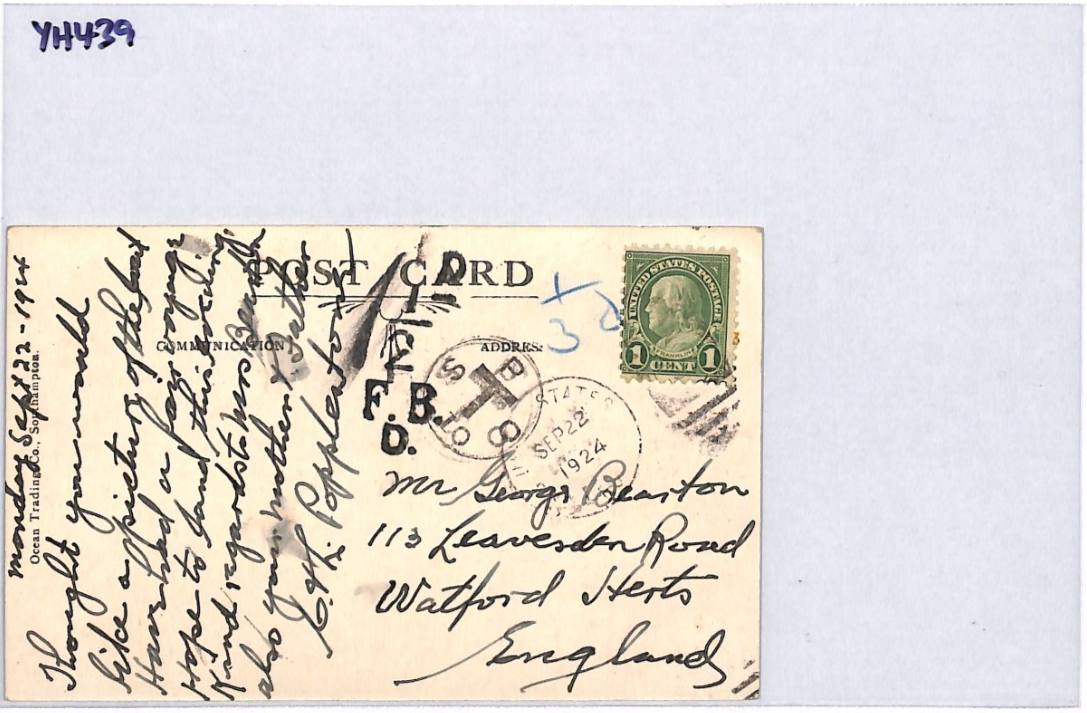 YH439
POST CARD
COMMUNICATION
ADDRESS
Ocean Trading Co., Southampton.
Monday Sept 22-1924
Thought you would
like a picture of the boat
Have had a fair voyage
Hope to land this evening
Kind regards to Miss
also your mother & father
C. H. Poppleston
1½D
F.B.
D.
T
+
3
UNITED STATES POSTAGE
FRANKLIN
1 CENT 1
STATES
SEP 22
1924
Mr George Bearton
113 Leavesden Road
Watford Herts
England